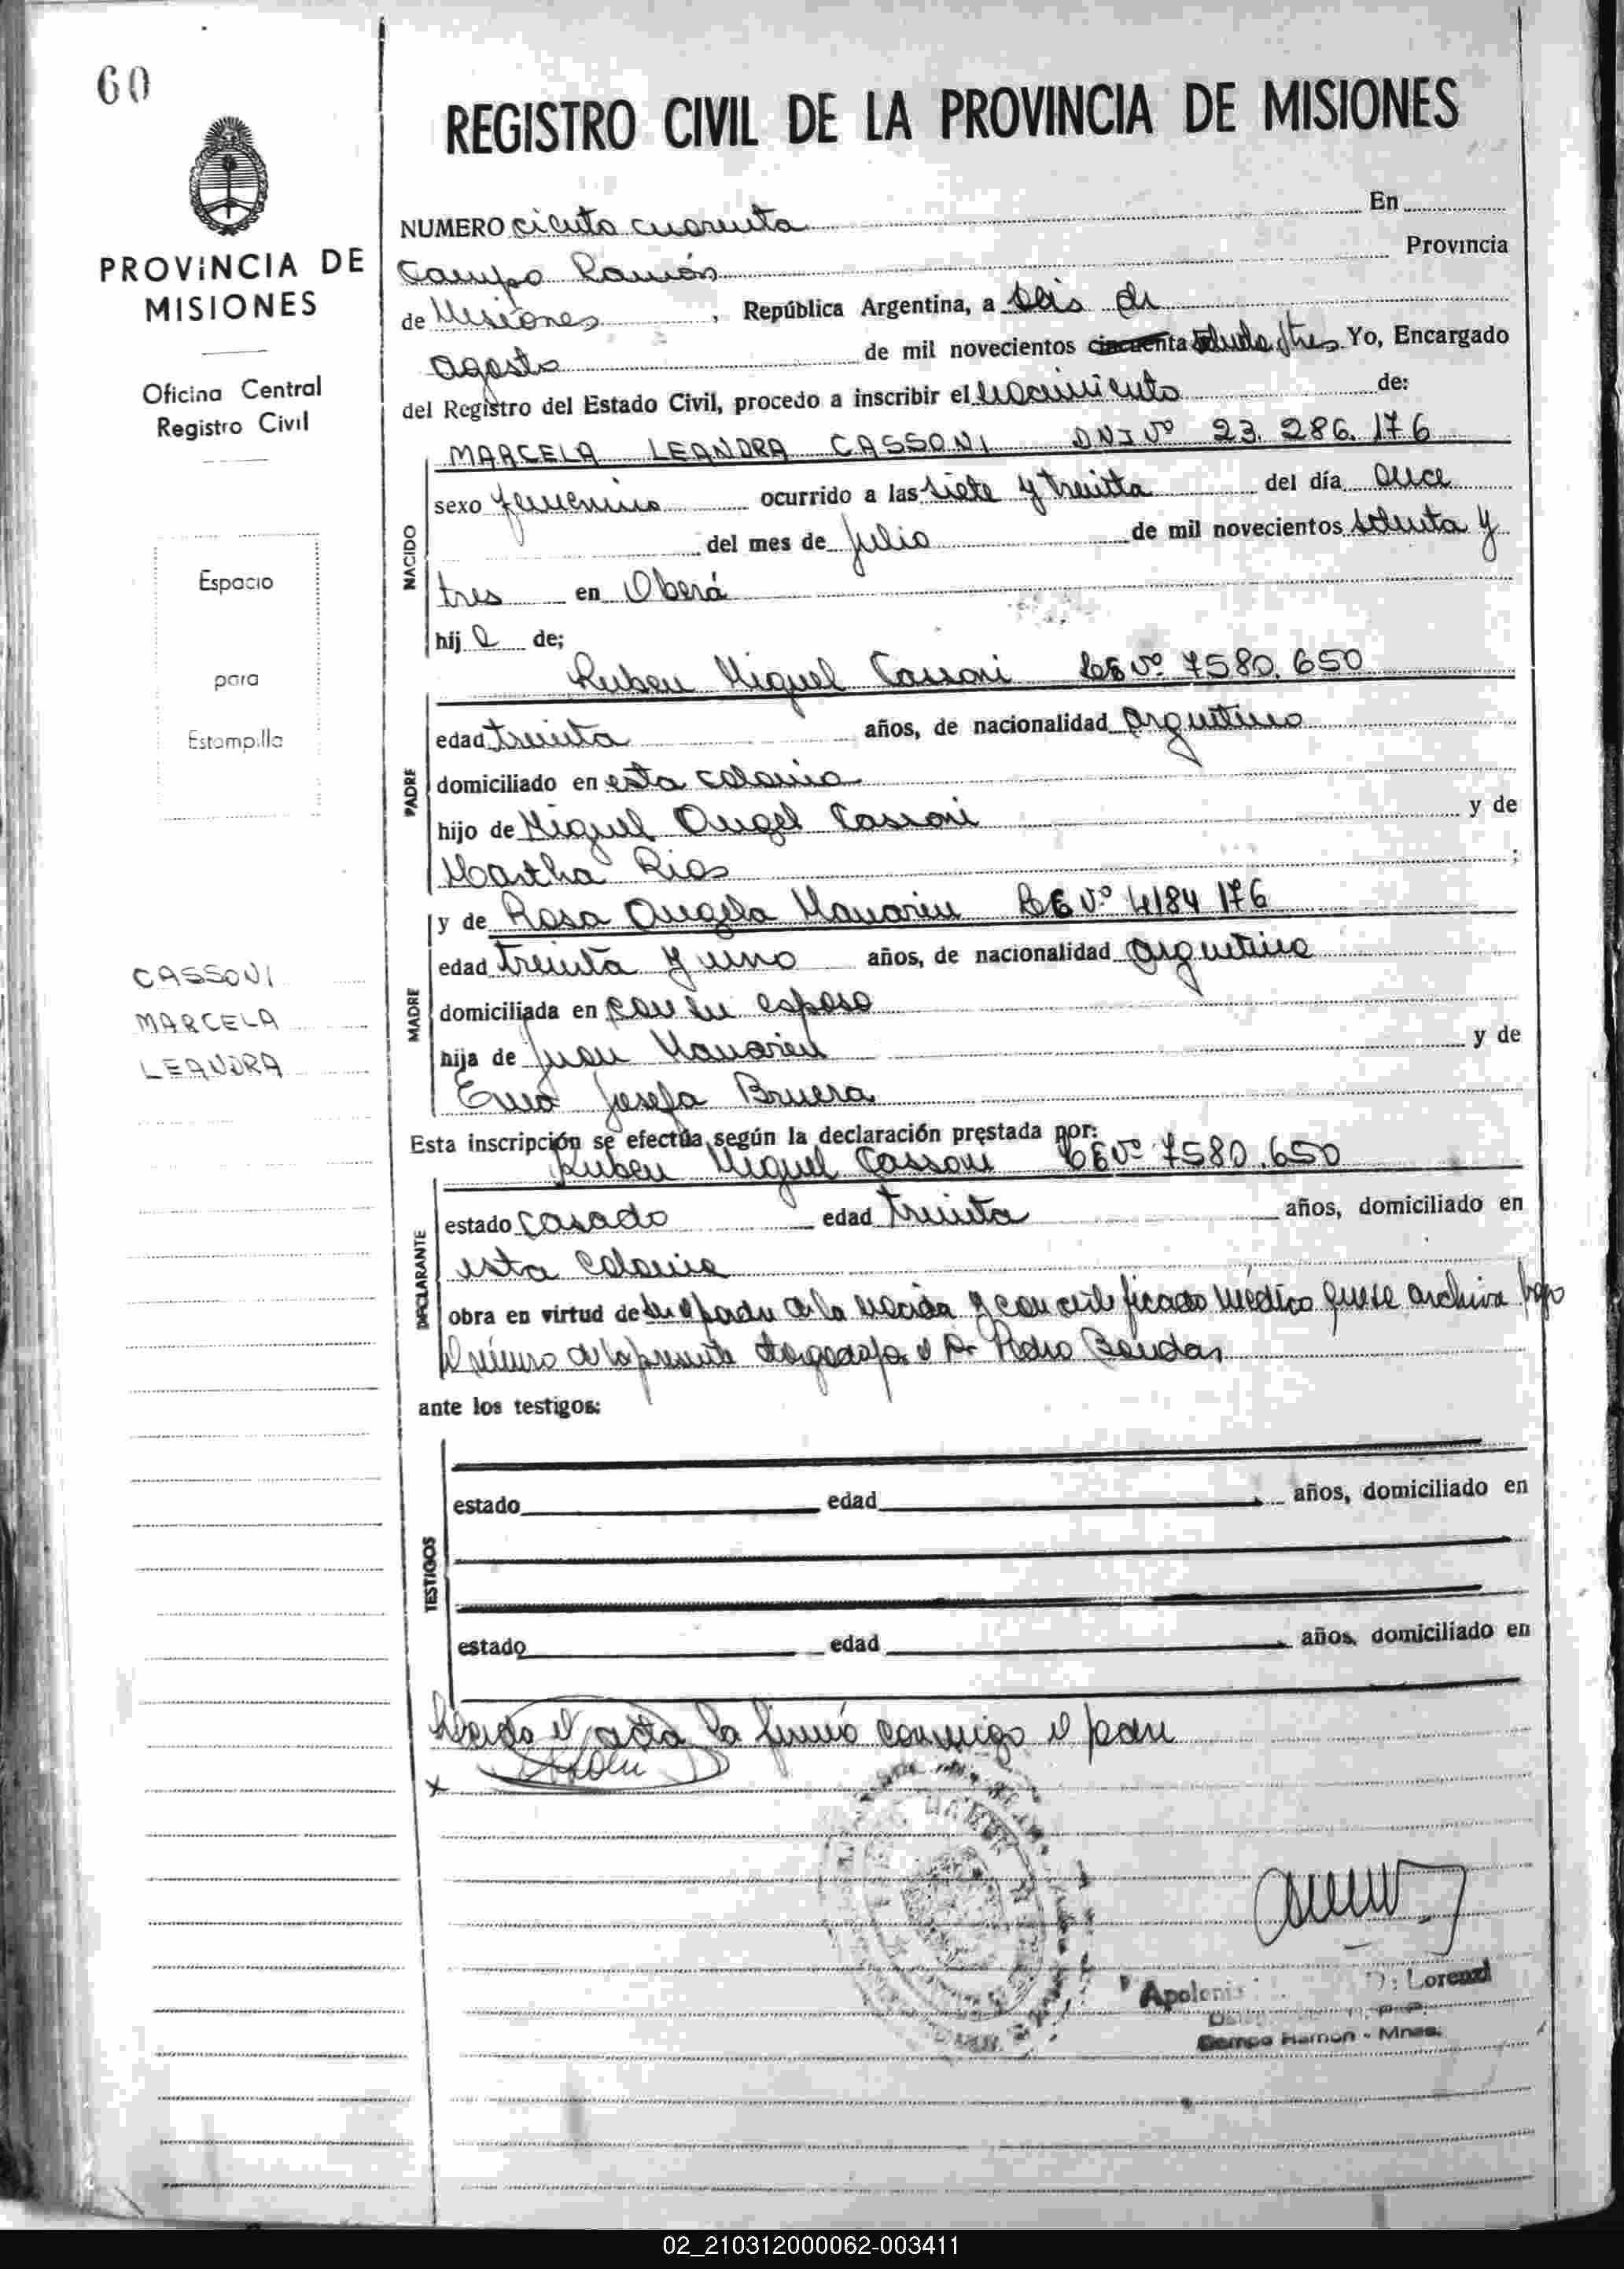 60
REGISTRO CIVIL DE LA PROVINCIA DE MISIONES
PROVINCIA DE
MISIONES
Oficina Central
Registro Civil
Espacio
para
Estampilla
CASSONI
MARCELA
LEANDRA
NUMERO ciento cuarenta En
Campo Ramón Provincia
de Misiones, República Argentina, a seis de
agosto de mil novecientos cincuenta setenta y tres Yo, Encargado
del Registro del Estado Civil, procedo a inscribir el nacimiento de:
NACIDO
MARCELA LEANDRA CASSONI DNI Nº 23.286.176
sexo femenino ocurrido a las siete y treinta del día once
del mes de julio de mil novecientos setenta y
tres en Oberá
hij a de;
PADRE
Ruben Miguel Cassoni LE Nº 7580.650
edad treinta años, de nacionalidad argentino
domiciliado en esta colonia
hijo de Miguel Angel Cassoni y de
Martha Rios ;
MADRE
y de Rosa Angela LE Nº 4184176
edad treinta y uno años, de nacionalidad argentina
domiciliada en con su esposo
hija de Juan y de
Ema Josefa Bruera
Esta inscripción se efectúa según la declaración prestada por:
DECLARANTE
Ruben Miguel Cassoni LE Nº 7580.650
estado casado edad treinta años, domiciliado en
esta colonia
obra en virtud de ser padre de la nacida y con certificado médico que se archiva bajo
el número de la presente por el Dr Pedro
ante los testigos:
TESTIGOS
estado edad años, domiciliado en
estado edad años, domiciliado en
Leida el acta la firmó conmigo el padre
x
Apolonia D. Lorenzi
Campo Ramón - Mnes.
02_210312000062-003411